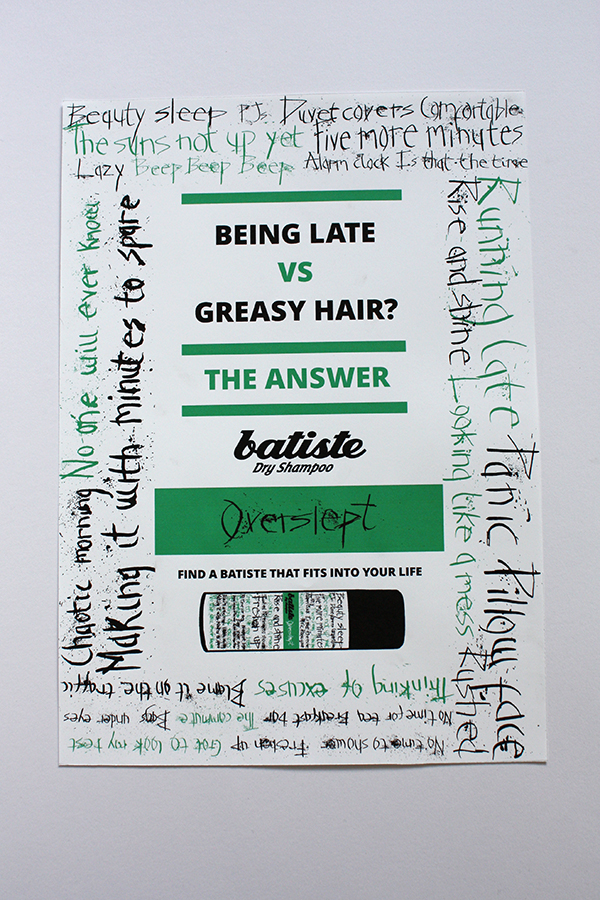 Beauty sleep PJs Duvet covers Comfortable
The suns not up yet five more minutes
Lazy Beep Beep Beep Alarm clock Is that the time
Running late Panic Pillow face
Rise and shine Looking like a mess Rushed
BEING LATE
VS
GREASY HAIR?
THE ANSWER
batiste
Dry Shampoo
Overslept
FIND A BATISTE THAT FITS INTO YOUR LIFE
Thinking of excuses Blame it on the traffic
No time for tea Breakfast bar The commute Bags under eyes
No time to shower Freshen up Got to look my best
Chaotic morning No one will ever know
Making it with minutes to spare